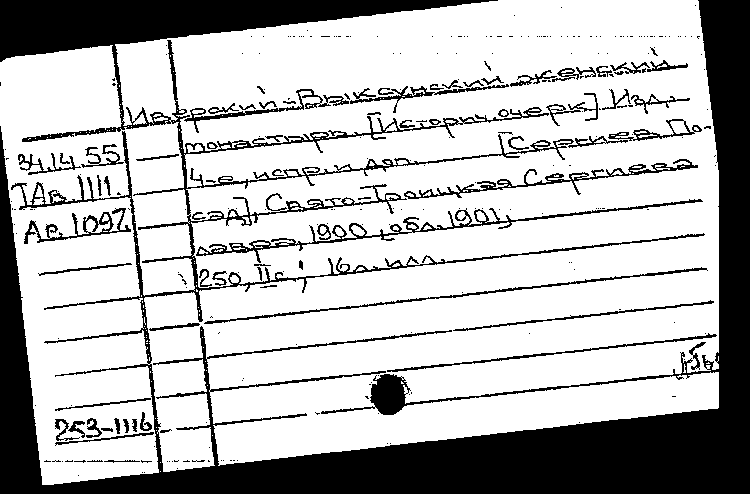 Иверский-Выксунский женский
монастырь. [Историч. очерк] Изд.
34.14.55
4-е, испр. и доп. [Сергиев По-
IАв. 1111.
сад], Свято-Троицкая Сергиева
Ав. 1097
лавра, 1900 [обл. 1901],
250, II с.; 16 л. илл.
253-1116